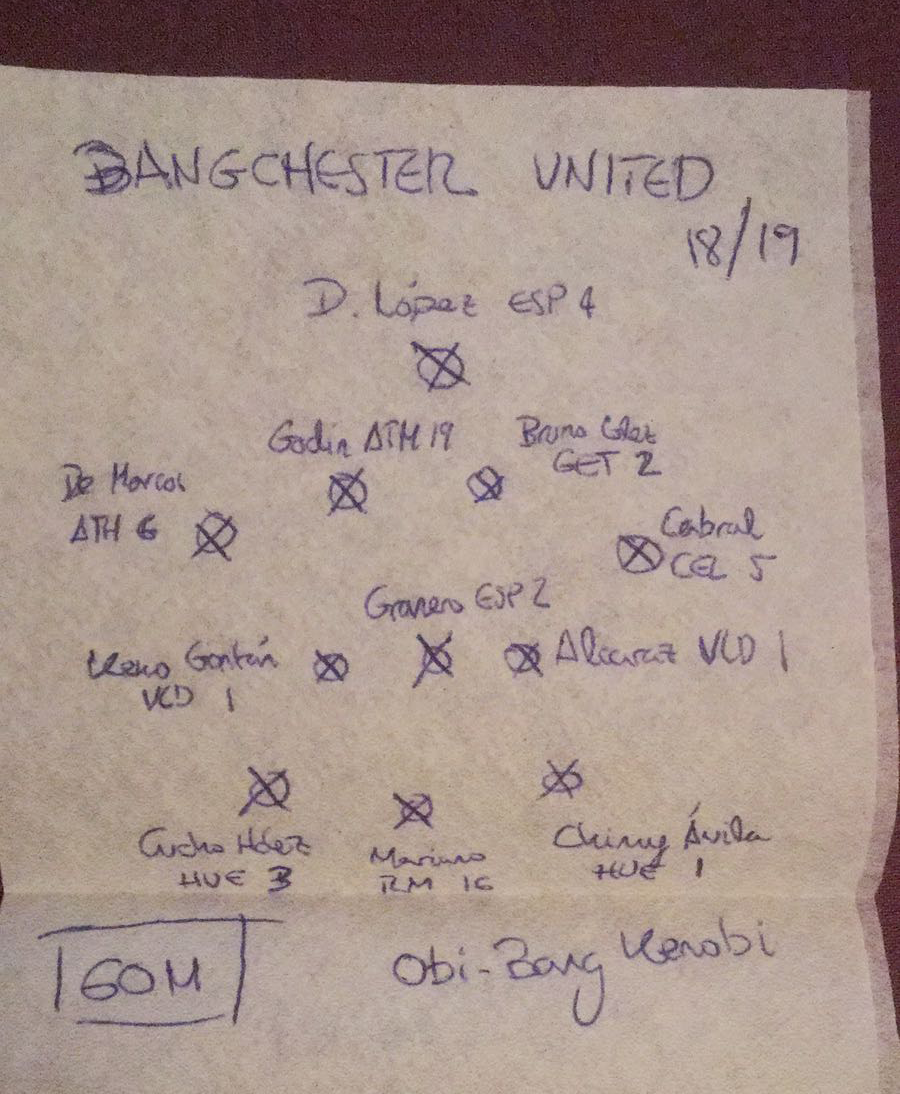 BANGCHESTER UNITED
18/19
D. López ESP 4
Godín ATM 19
Bruno Glez
GET 2
De Marcos
ATH 6
Cabral
CEL 5
Granero ESP 2
Keko Gontán
VLD 1
Alcaraz VLD 1
Cucho Hdez
HUE 3
Mariano
RM 16
Chimy Ávila
HUE 1
60M
Obi-Bang Kenobi